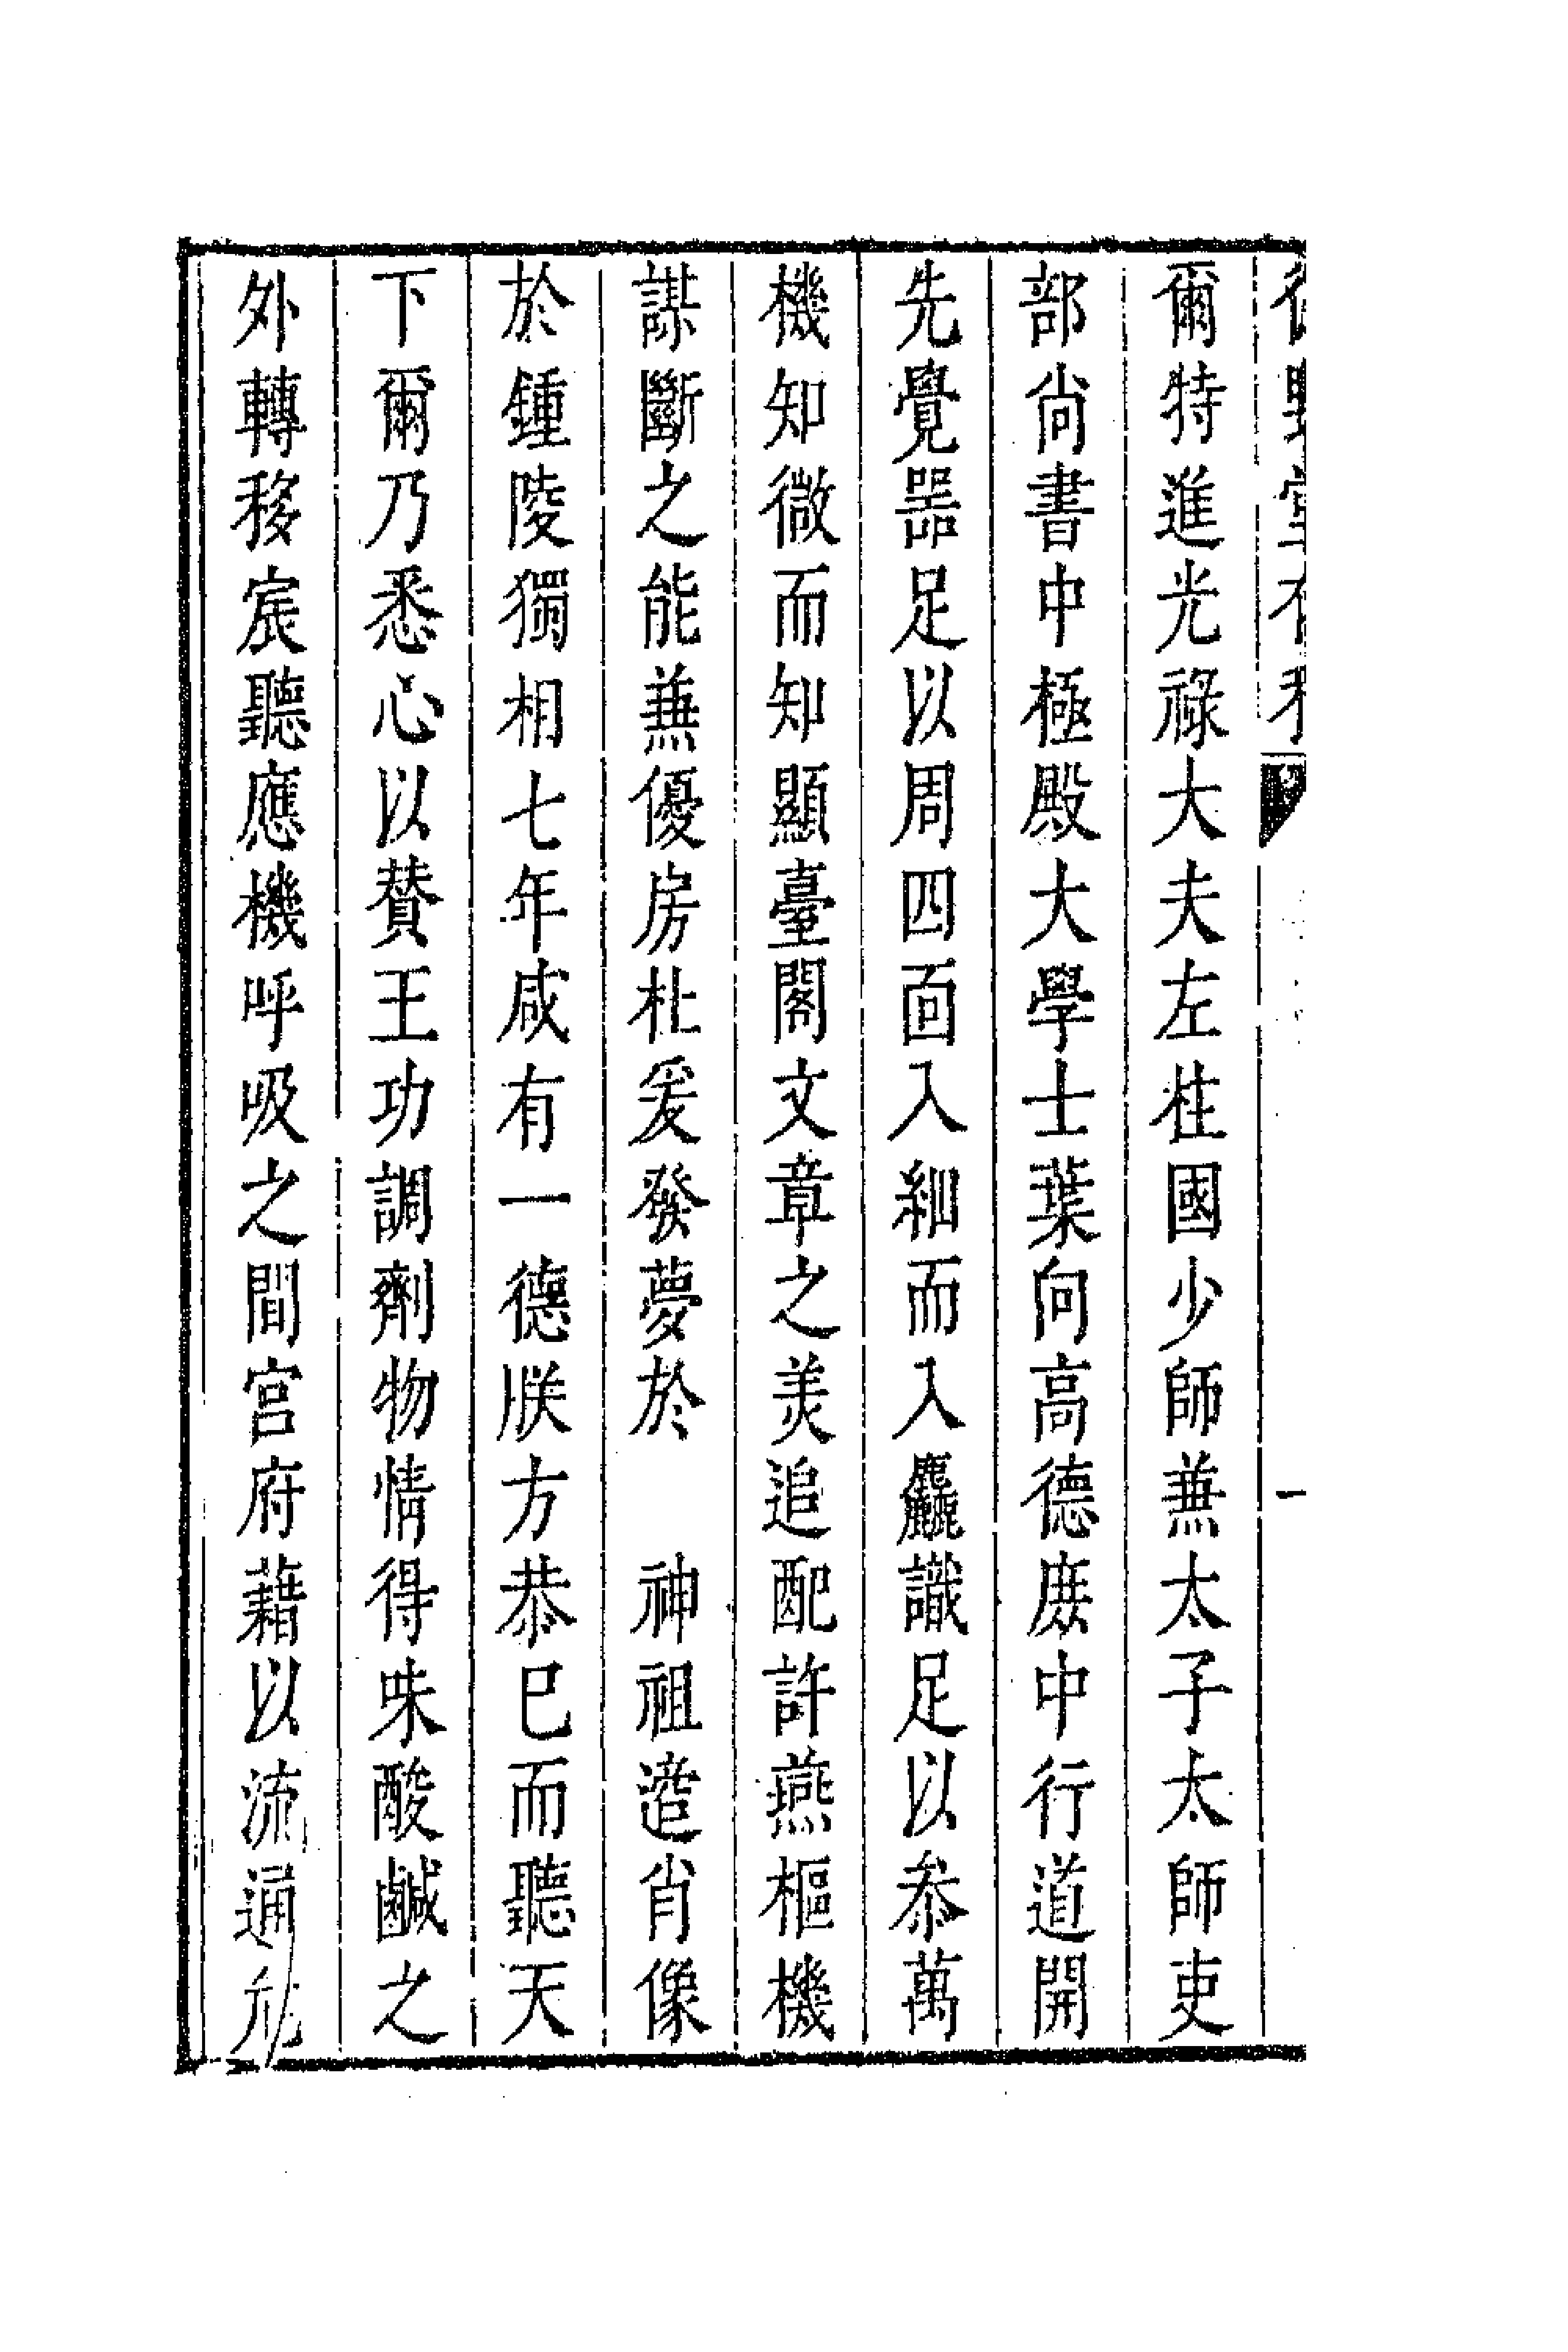 爾特進光祿大夫左柱國少師兼太子太師吏
部尚書中極殿大學士葉向高德庶中行道開
先覺器足以周四面入細而入麤識足以叅萬
機知微而知顯臺閣文章之美追配許燕樞機
謀斷之能兼優房杜爰發夢於　神祖造肖像
於鍾陵獨相七年咸有一德朕方恭巳而聽天
下爾乃悉心以贊王功調劑物情得味酸鹹之
外轉移宸聽應機呼吸之間宮府藉以流通